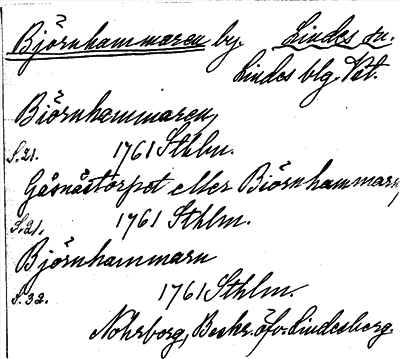 Björnhammaren by. Lindes sn.
Lindes blg Vst.
Biörnhammaren,
S. 21. 1761 Sthlm.
Gåsnästorpet eller Biörnhammarn,
S. 21. 1761 Sthlm.
Björnhammarn
S. 32. 1761 Sthlm.
Nohrborg, Beskr. öfver Lindesberg.